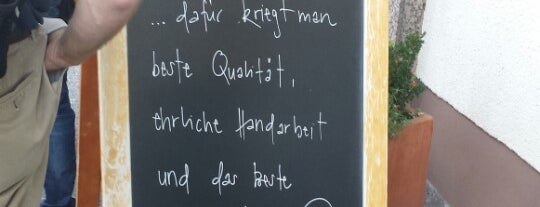 ... dafür kriegt man
beste Qualität,
ehrliche Handarbeit
und das beste